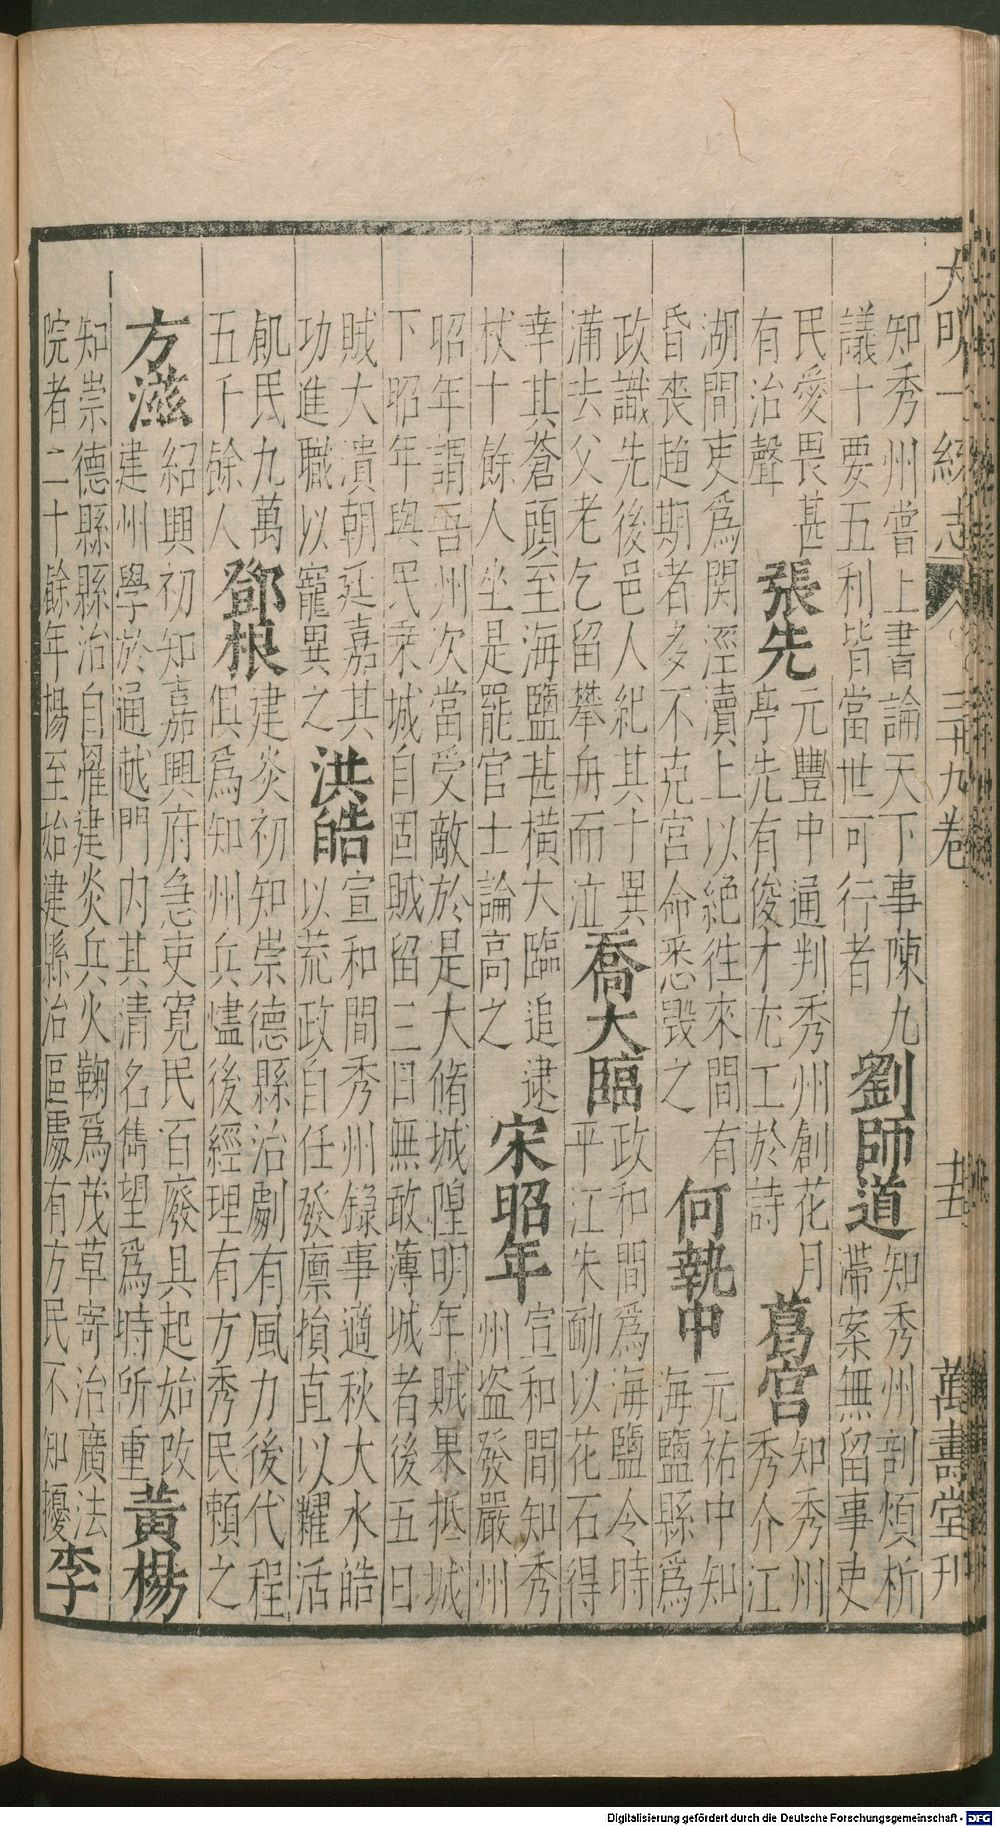 大明一統志 三十九卷 五 萬壽堂刊
知秀州嘗上書論天下事陳九
議十要五利皆當世可行者
劉師道
知秀州剖煩析
滯案無留事吏
民愛畏甚
有治聲
張先
元豐中通判秀州創花月
亭先有俊才尤工於詩
葛宮
知秀州
秀介江
湖間吏爲関涇瀆上以絶徃來間有
昏喪趂期者多不克宮命悉毀之
何執中
元祐中知
海鹽縣爲
政識先後邑人紀其十異
蒲去父老乞留攀舟而泣
喬大臨
政和間爲海鹽令時
平江朱勔以花石得
幸其蒼頭至海鹽甚橫大臨追逮
杖十餘人坐是罷官士論高之
宋昭年
宣和間知秀
州盜發嚴州
昭年謂吾州次當受敵於是大脩城隍明年賊果抵城
下昭年與民乗城自固賊留三日無敢薄城者後五日
賊大潰朝廷嘉其
功進職以寵異之
洪皓
宣和間秀州錄事適秋大水皓
以荒政自任發廪損直以糶活
飢民九萬
五千餘人
鄧根
建炎初知崇德縣治劇有風力後代程
俱爲知州兵燼後經理有方秀民頼之
方滋
紹興初知嘉興府急吏寬民百廢具起始改
建州學於通越門内其清名雋望爲時所重
黃楊
知崇德縣縣治自罹建炎兵火鞠爲茂草寄治廣法
院者二十餘年揚至始建縣治區處有方民不知擾
李
Digitalisierung gefördert durch die Deutsche Forschungsgemeinschaft - DFG